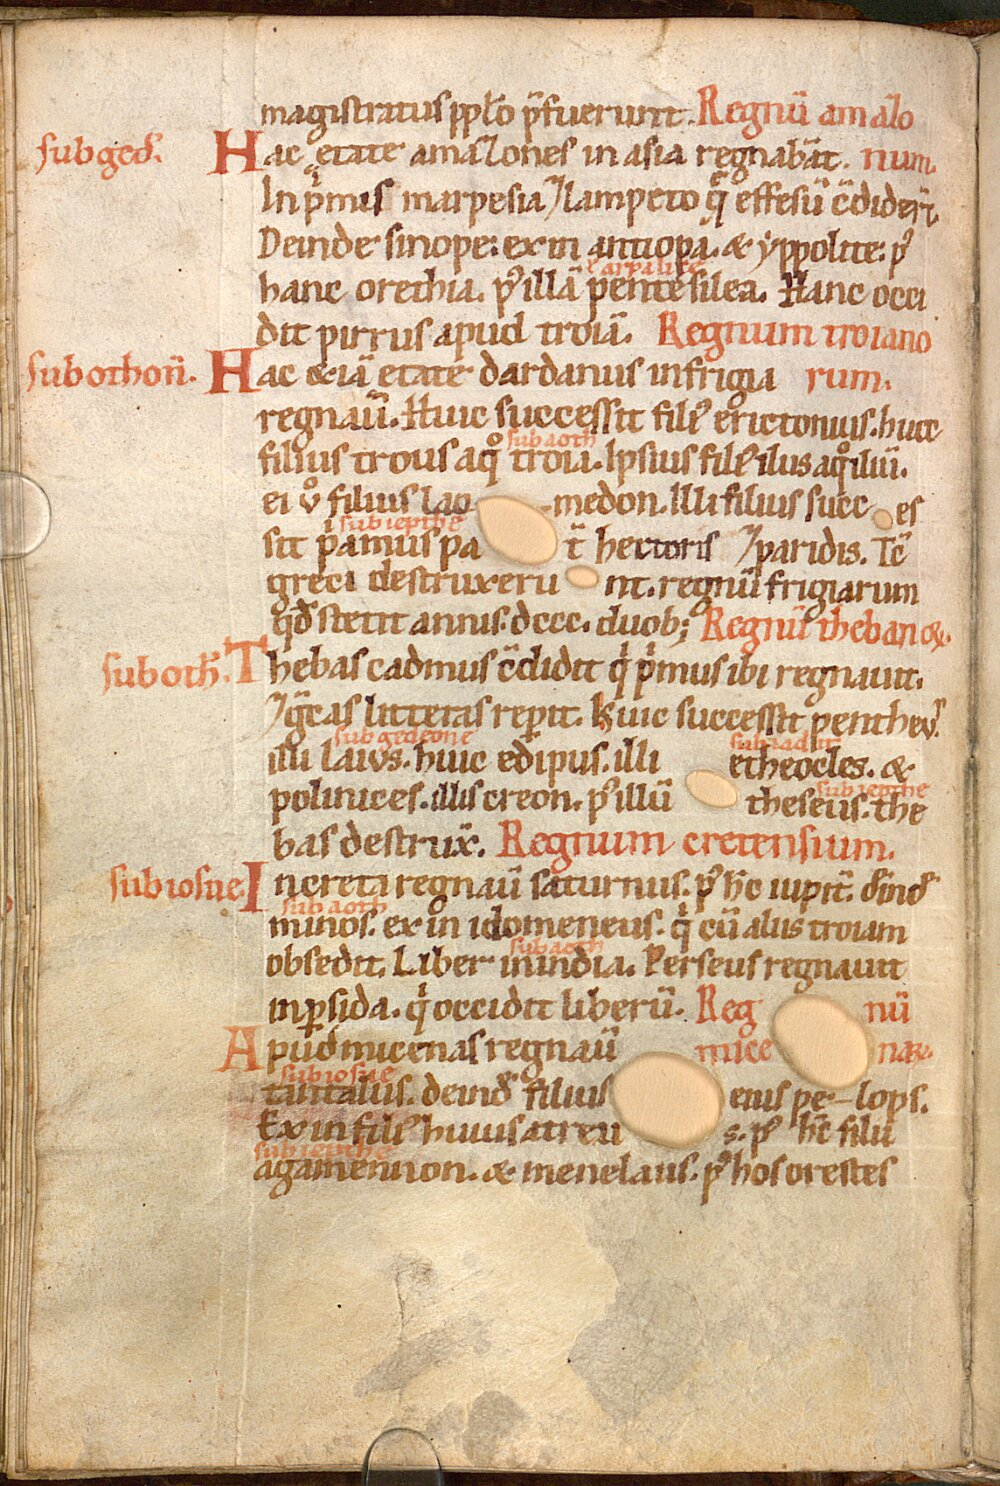 magistratus pplo p̄fuerunt. Regnū amaZo
sub ged̄. Hac etate amaZones in asia regnabāt. num.
In pͥmis marpesia ⁊ lampeto q̄ effesū c̄dider̄t
Deinde sinope: ex in antiopa. & yppolite: pꝰ
& arpalice
hanc orethia. pꝰ illā pentesilea. Hanc occi
dit pirrus apud troiā. Regnum troiano
sub othoni. Hac &iā etate dardanus in frigia rum.
regnaū. Huic successit filꝰ erictonius. huic
sub aoth
filius trous a qͦ troia. Ipsius filꝰ ilus a qͦ iliū.
ei v̊ filius lao medon. Illi filius succ es
sub iepthe
sit pͥamus pa t̄ hectoris ⁊ paridis. Tc̄
greci destruxeru nt. regnū frigiarum
qd̄ stetit annis. dccc. duob; Regnū thebanoꝝ.
sub oth̄. Thebas cadmus c̄didit qͥ pͥmus ibi regnauit.
⁊ gͤcas litteras repit. Huic successit pentheꝰ.
sub gedeone sub iadir
illi laius. huic edipus. illi etheocles. &
sub iepthe
polinices. illis creon. pꝰ illū theseus. the
bas destrux̄. Regnum cretensium.
sub iosue. In creta regnaū saturnus. pꝰ hc̄ iupit̄. dind̄
sub aoth
minos. ex in idomeneus. qͥ cū aliis troiam
sub aoth
obsedit. Liber in india. Perseus regnauit
in psida. qͥ occidit liberū. Reg nū
Apud micenas regnaū mice naꝝ.
sub iosue
tantalus. deind̄ filius eius pe-lops.
Ex in filꝰ huius atreu s. pꝰ hc̄ filii
sub iepthe
agamennon. & menelaus. pꝰ hos orestes